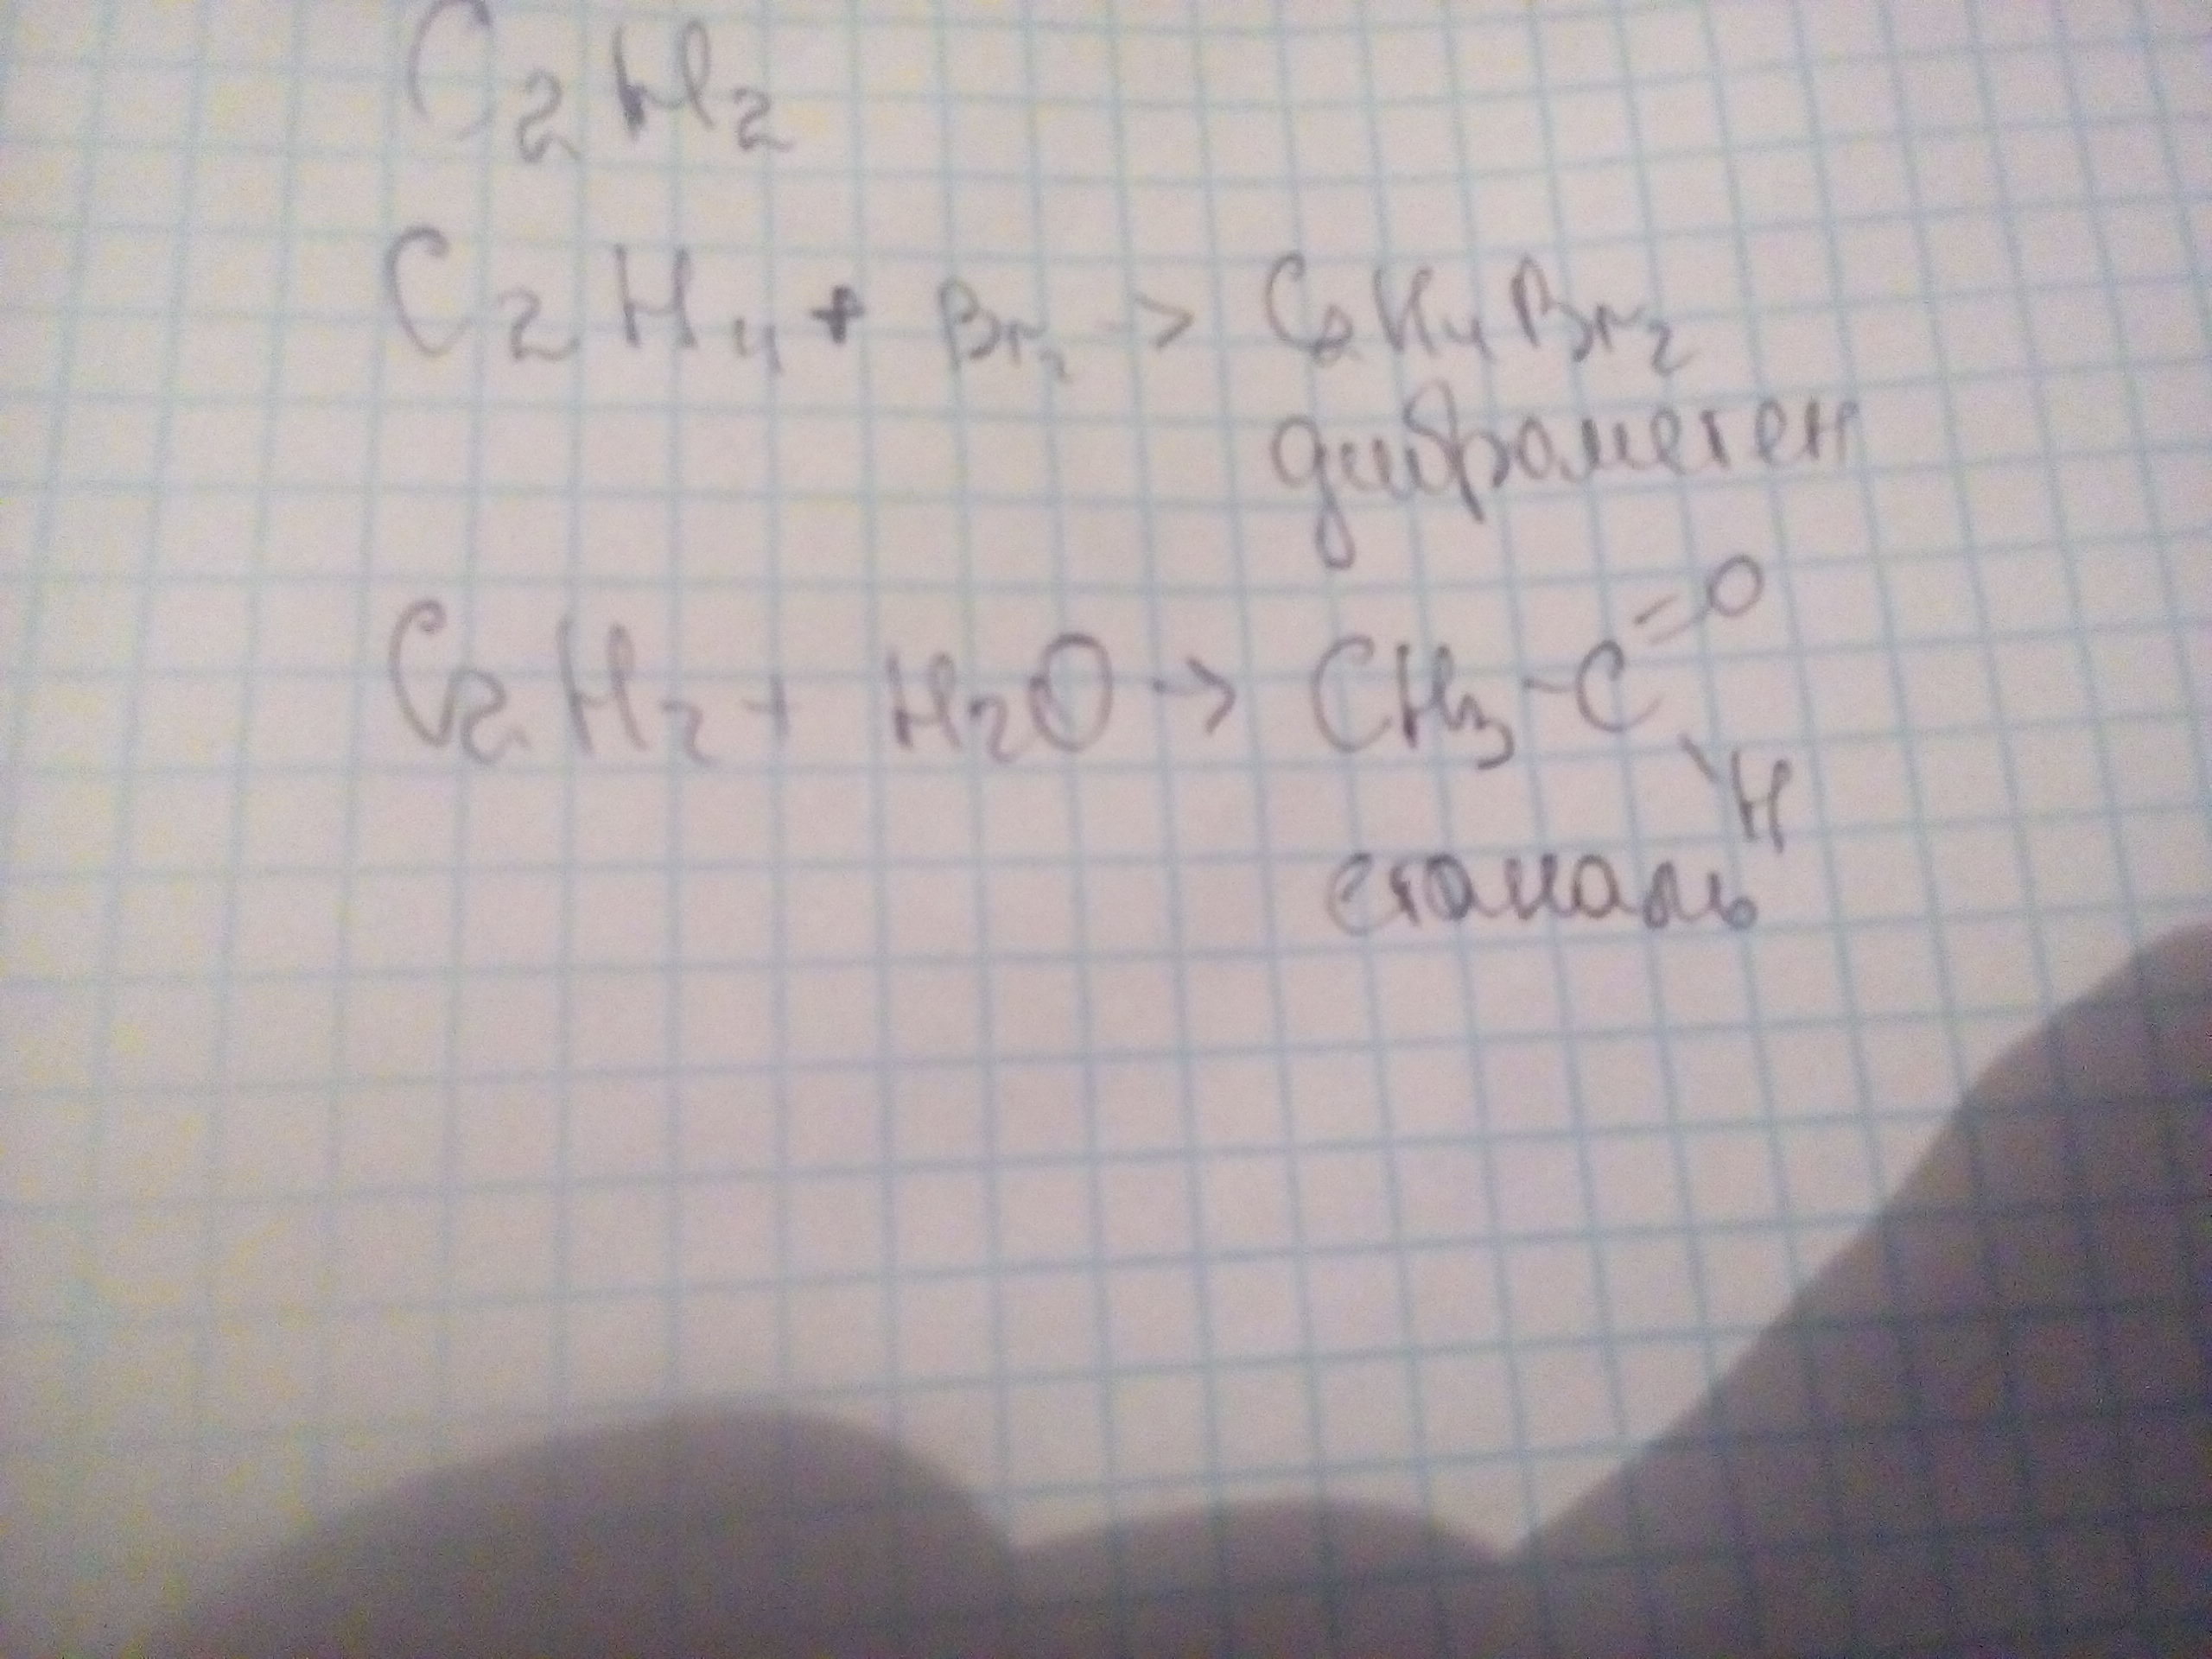 C2H2
C2H4 + Br2 -> C2H4Br2
диброметен
C2H2 + H2O -> CH3-C=O
\H
етаналь